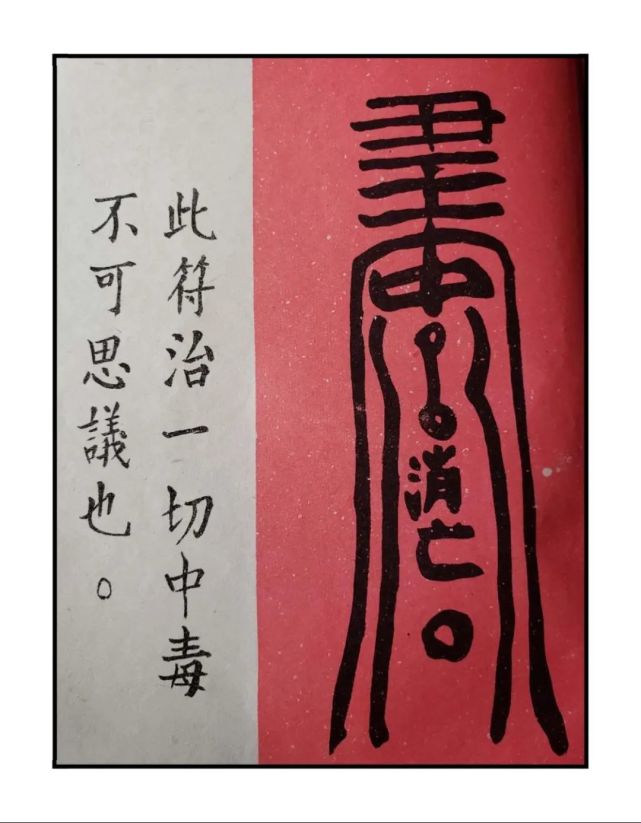 消亡
此符治一切中毒
不可思議也。